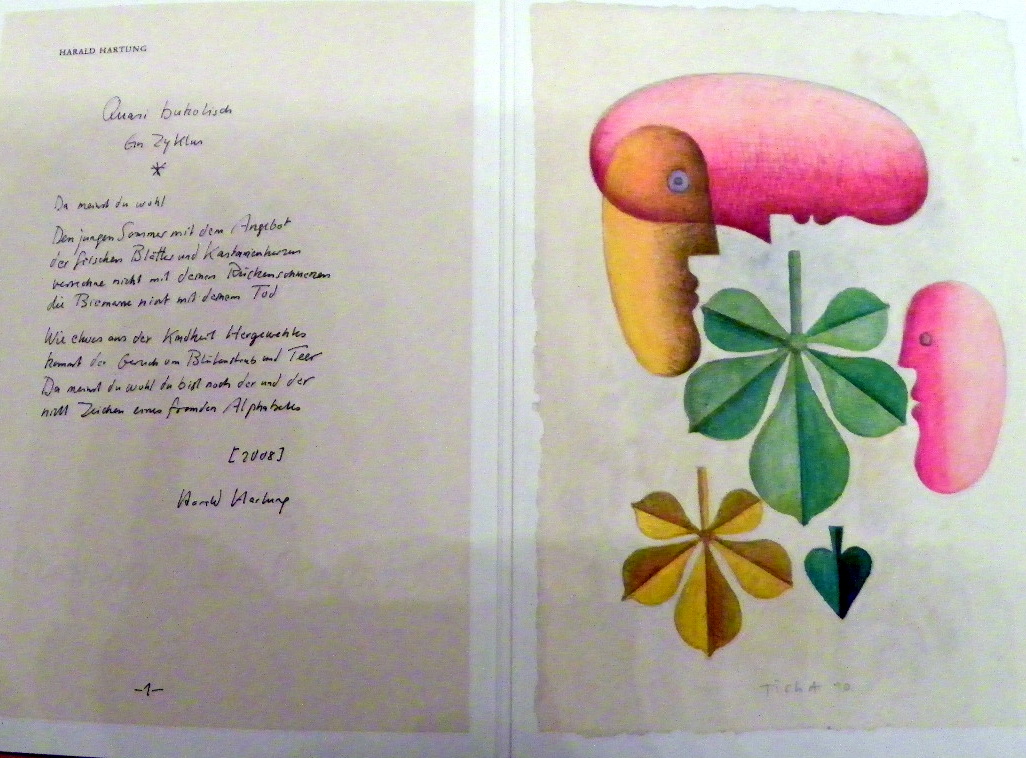 HARALD HARTUNG
Quasi bukolisch
Ein Zyklus
*
Da meinst du wohl
Den jungen Sommer mit dem Angebot
der frischen Blätter und Kastanienkerzen
verrechne nicht mit deinen Rückenschmerzen
die Biermarke nicht mit deinem Tod
Wie etwas aus der Kindheit Hergewehtes
kommt der Geruch von Blütenstaub und Teer
Da meinst du wohl du bist noch der und der
nicht Zeichen eines fremden Alphabetes
[2008]
Harald Hartung
-1-
TICHA